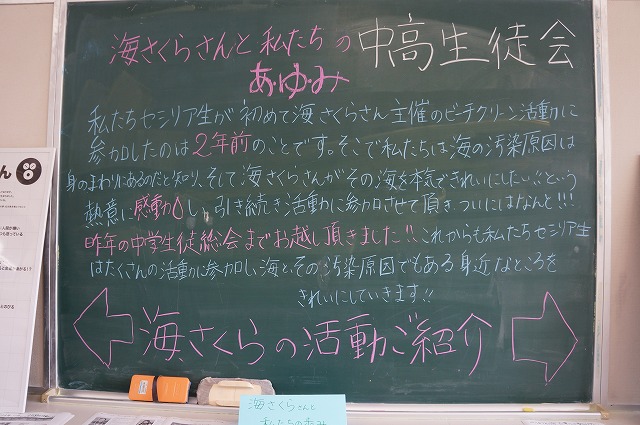 海さくらさんと私たちの 中高生徒会
あ・ゆ・み
私たちセシリア生が初めて海さくらさん主催のビーチクリーン活動に
参加したのは2年前のことです。そこで私たちは海の汚染原因は
身のまわりにあるのだと知り、そして海さくらさんがその海を本気できれいにしたい!!という
熱意に感動し、引き続き活動に参加させて頂き、ついにはなんと!!!
昨年の中学生徒総会までお越し頂きました!!これからも私たちセシリア生
はたくさんの活動に参加し、海と、その汚染原因でもある身近なところを
きれいにしていきます!!
海さくらの活動ご紹介
海さくらさんと
私たちの歩み